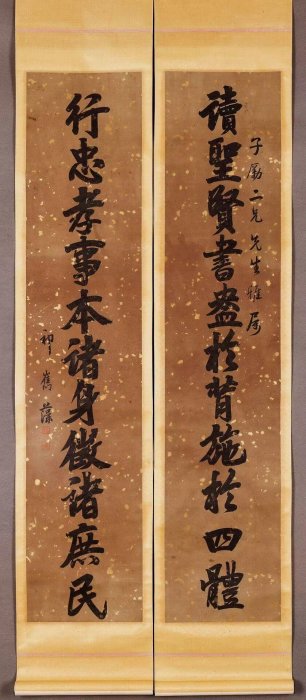 子勵二兄先生雅屬
讀聖賢書盎於背施於四體
行忠孝事本諸身徵諸庶民
祁寯藻